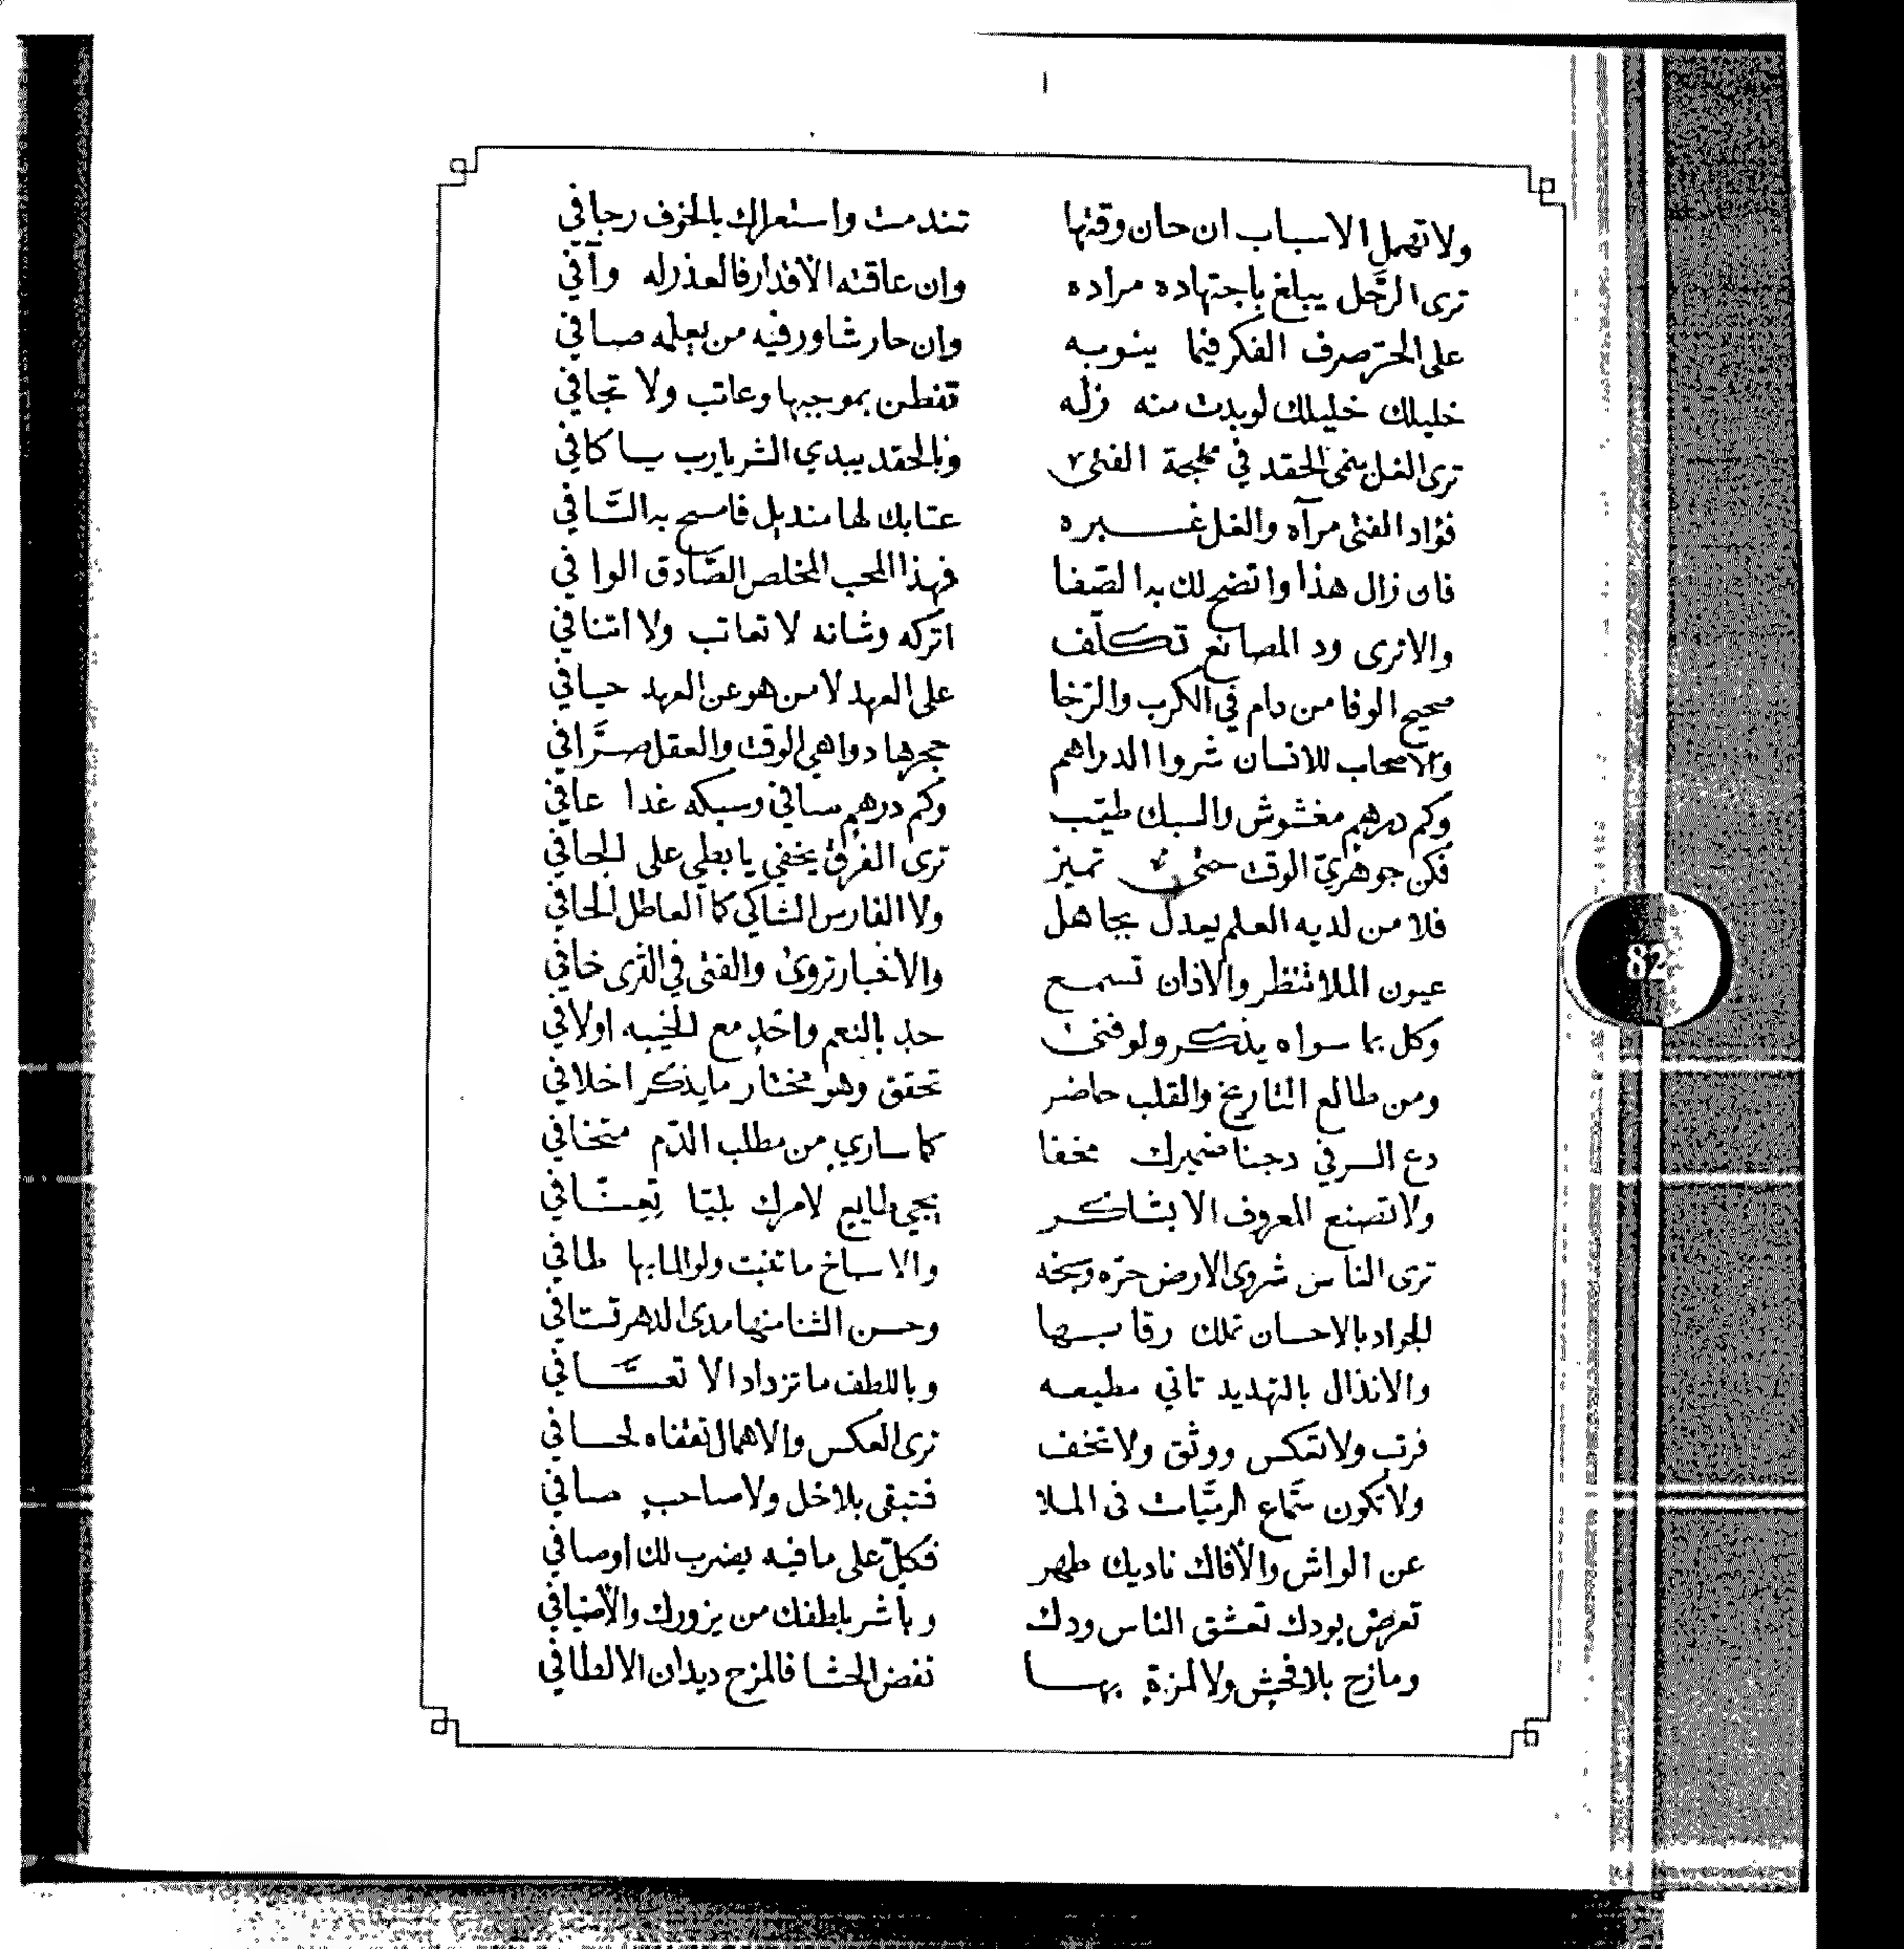 ولا تهمل الاسباب ان حان وقتها تندمت واستعراك بالخوف رجافي
ترى الرجل يبلغ باجتهاده مراده وان عاقته الاقدار فالعذر له وآفي
على الحر صرف الفكر فيما ينوبه وان حار شاور فيه من يعلمه صافي
خليلك خليلك لو بدت منه زله تفطن بموجبها وعاتب ولا تجافي
ترى الغل ينمي الحقد في الفتى وبالحقد يبدي الشر يارب يا كافي
فؤاد الفتى مرآه والغل غبره عتابك لها منديل فامسح به السّافي
فان زال هذا واتضح لك به الصّفا فهذا المحب المخلص الصّادق الوافي
والا ترى ود المصانع تكلّف اتركه وشانه لا تعاتب ولا اتنافي
صحيح الوفا من دام في الكرب والرّخا على العهد لا من هو عن العهد حيافي
والاصحاب للانسان شروا الدراهم حجرها دواهي الوقت والعقل صرّافي
وكم درهم مغشوش والسبك طيّب وكم درهم سافي وسبكه غدا عافي
فكن جوهريّ الوقت حتى تميز ترى الفرق يخفي يا بعلي على الجافي
فلا من لديه العلم يعدل بجاهل ولا الفارس الشاكي كما العاطل الحافي
عيون الملا تنظر والاذان تسمع والاخبار تروى والفتى في الثرى خافي
وكل بما سواه يذكر ولو فنى حدٍ بالنعم واحدٍ مع الخيبه اولافي
ومن طالع التاريخ والقلب حاضر تحقق وهو مختار ما يذكر اخلافي
دع السر في دجنا ضميرك مخفا كما ساري من مطلب الدّم متخافي
ولا تصنع المعروف الا بشاكر يجي طايع لامرك بليّا تعسّافي
ترى الناس شروى الارض حرّه وسبخه والاسباخ ما تنبت ولو الما بها طافي
الجواد بالاحسان تملك رقابها وحسن الثنا منها مدى الدهر تستافي
والانذال بالتهديد تاتي مطيعه وباللطف ما تزداد الا تعسّافي
فرتب ولا تعكس ووثق ولا تخف ترى العكس والاهمال تقفاه لحسافي
ولا تكون سمّاع الرميّات في الملا فتبقى بلا خل ولا صاحب صافي
عن الواش والأفاك ناديك طهر فكلّ على ما فيه يضرب لك اوصافي
تعرض بودك تعشق الناس ودك وباشر بلطفك من يزورك والأضيافي
ومازح بلا فحش ولا لمزة بها تفض الحشا فالمزح ديدان الالطافي
82